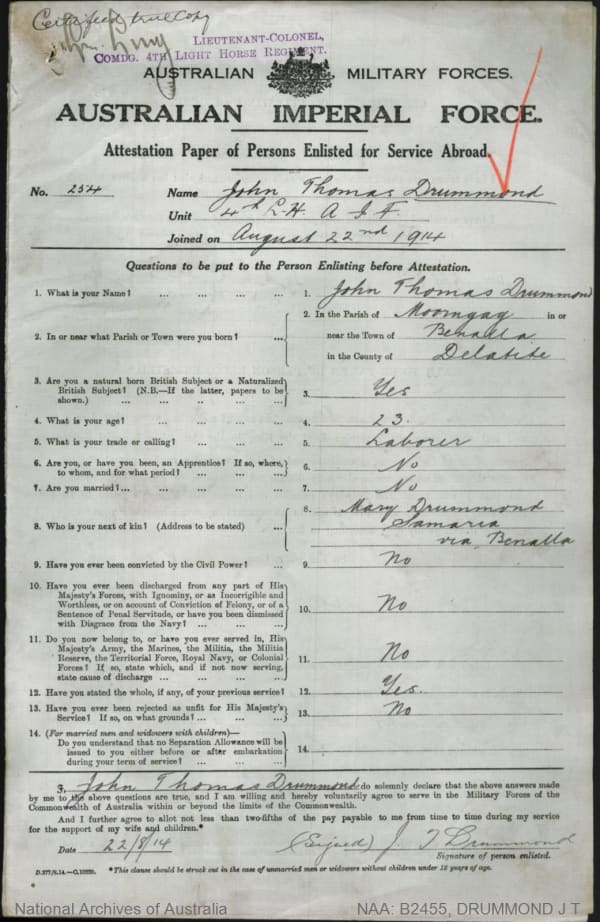 Certified true Copy
LIEUTENANT-COLONEL,
COMDG. 4TH LIGHT HORSE REGIMENT.
AUSTRALIAN MILITARY FORCES.
AUSTRALIAN IMPERIAL FORCE.
Attestation Paper of Persons Enlisted for Service Abroad.
No. 254 Name John Thomas Drummond
Unit 4th L.H. A I F.
Joined on August 22nd 1914
Questions to be put to the Person Enlisting before Attestation.
1. What is your Name? ... ... ... ... 1. John Thomas Drummond
2. In or near what Parish or Town were you born? ... 2. In the Parish of Moorngag in or
near the Town of Benalla
in the County of Delatite
3. Are you a natural born British Subject or a Naturalized
British Subject? (N.B.—If the latter, papers to be
shown.) ... ... ... ... ... 3. Yes
4. What is your age? ... ... ... ... 4. 23.
5. What is your trade or calling? ... ... ... 5. Laborer
6. Are you, or have you been, an Apprentice? If so, where,
to whom, and for what period? ... ... ... 6. No
7. Are you married? ... ... ... ... 7. No
8. Who is your next of kin? (Address to be stated) ... 8. Mary Drummond
Samaria
via Benalla
9. Have you ever been convicted by the Civil Power? ... 9. No
10. Have you ever been discharged from any part of His
Majesty's Forces, with Ignominy, or as Incorrigible and
Worthless, or on account of Conviction of Felony, or of a
Sentence of Penal Servitude, or have you been dismissed
with Disgrace from the Navy? ... ... ... 10. No
11. Do you now belong to, or have you ever served in, His
Majesty's Army, the Marines, the Militia, the Militia
Reserve, the Territorial Force, Royal Navy, or Colonial
Forces? If so, state which, and if not now serving,
state cause of discharge ... ... ... ... 11. No
12. Have you stated the whole, if any, of your previous service? 12. Yes.
13. Have you ever been rejected as unfit for His Majesty's
Service? If so, on what grounds? ... ... ... 13. No
14. (For married men and widowers with children)—
Do you understand that no Separation Allowance will be
issued to you either before or after embarkation
during your term of service? ... ... ... 14.
I, John Thomas Drummond do solemnly declare that the above answers made
by me to the above questions are true, and I am willing and hereby voluntarily agree to serve in the Military Forces of the
Commonwealth of Australia within or beyond the limits of the Commonwealth.
And I further agree to allot not less than two-fifths of the pay payable to me from time to time during my service
for the support of my wife and children.*
Date 22/8/14 (Signed) J. T Drummond
Signature of person enlisted.
*This clause should be struck out in the case of unmarried men or widowers without children under 18 years of age.
National Archives of Australia NAA: B2455, DRUMMOND J T